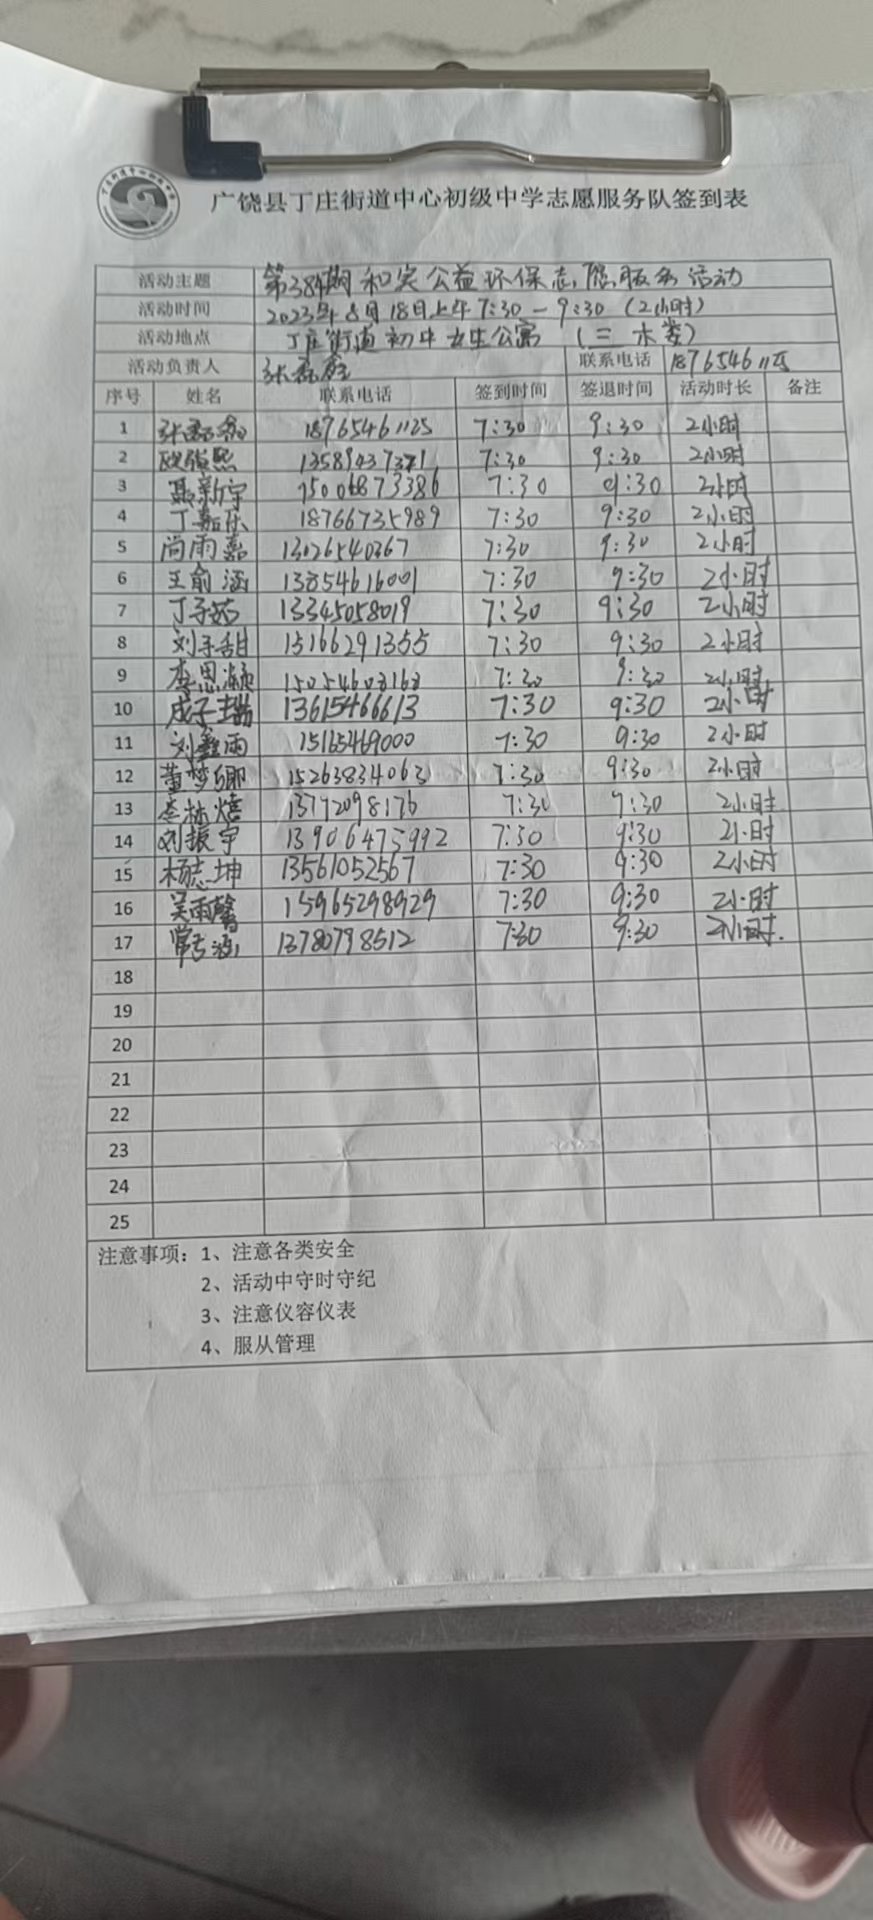 广饶县丁庄街道中心初级中学志愿服务队签到表
活动主题 第384期和实公益环保志愿服务活动
活动时间 2023年8月18日上午7:30-9:30(2小时)
活动地点 丁庄街道初中女生公寓(二木娄)
活动负责人 联系电话 18765461125
序号 姓名 联系电话 签到时间 签退时间 活动时长 备注
1 18765461125 7:30 9:30 2小时
2 7:30 9:30 2小时
3 聂新宇 15006873386 7:30 9:30 2小时
4 丁嘉乐 18766735989 7:30 9:30 2小时
5 尚雨嘉 13026540367 7:30 9:30 2小时
6 王俞涵 13854616001 7:30 9:30 2小时
7 丁子茹 13345058019 7:30 9:30 2小时
8 刘子甜 15166291355 7:30 9:30 2小时
9 李思颖 15054608168 7:30 9:30 2小时
10 成子瑞 13615466613 7:30 9:30 2小时
11 刘鑫雨 15165469000 7:30 9:30 2小时
12 董梦卿 15263834063 7:30 9:30 2小时
13 李林熺 7:30 9:30 2小时
14 刘振宇 13906475992 7:30 9:30 2小时
15 杨志坤 13561052567 7:30 9:30 2小时
16 吴雨馨 15965298929 7:30 9:30 2小时
17 13780798512 7:30 9:30 2小时.
18
19
20
21
22
23
24
25
注意事项:1、注意各类安全
2、活动中守时守纪
3、注意仪容仪表
4、服从管理